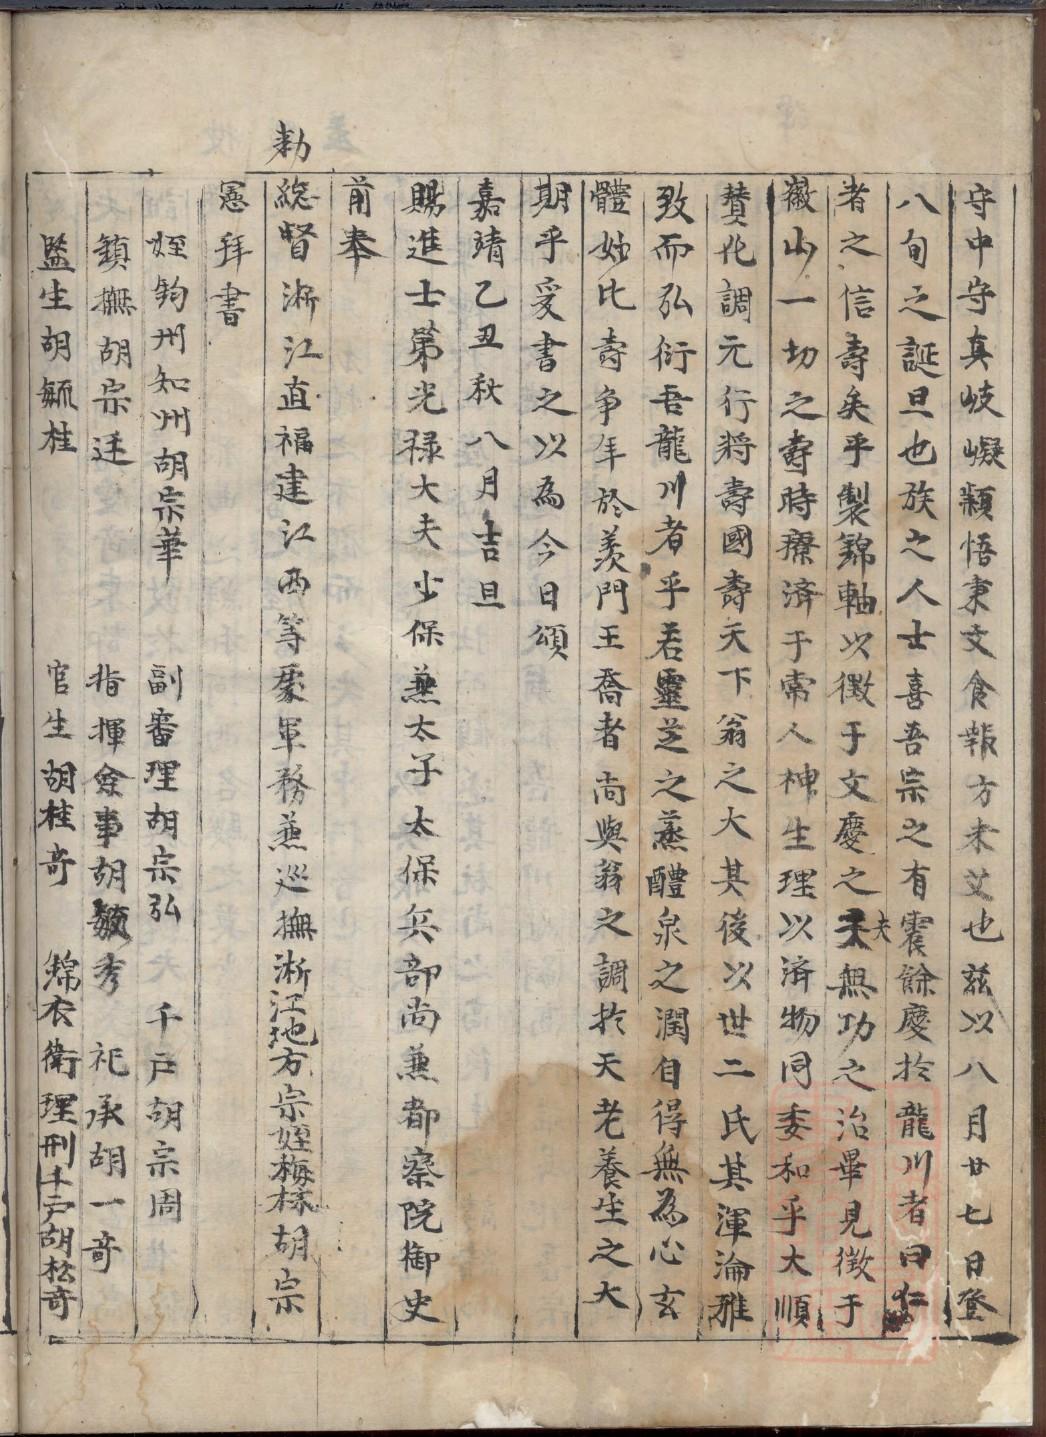 守中守真岐嶷穎悟秉文食報方未艾也茲以八月廿七日登
八旬之誕旦也族之人士喜吾宗之有震餘慶扵龍川者曰仁
者之信壽矣乎製錦軸以徴于文慶之夫無功之治畢見徴于
徽山一切之壽時療済于常人神生理以済物同委和乎大順
賛化調元行将壽國壽天下翁之大其後以世二氏其渾淪雅
致而弘衍吾龍川者乎若靈芝之蒸醴泉之潤自得無為心玄
體妙比壽争年於羨門王喬者尚與翁之調扵天老養生之大
期乎爰書之以為今日頌
嘉靖乙丑秋八月吉旦
賜進士第光禄大夫少保兼太子太保兵部尚兼都察院御史
前奉
勅
総督浙江直福建江西等處軍務兼巡撫浙江地方宗姪梅林胡宗
憲拜書
姪鈞州知州胡宗華 副審理胡宗弘 千戸胡宗周
鎮撫胡宗廷 指揮僉事胡 秀 祀承胡一竒
監生胡 桂 官生胡桂竒 錦衣衛理刑千戸胡松竒